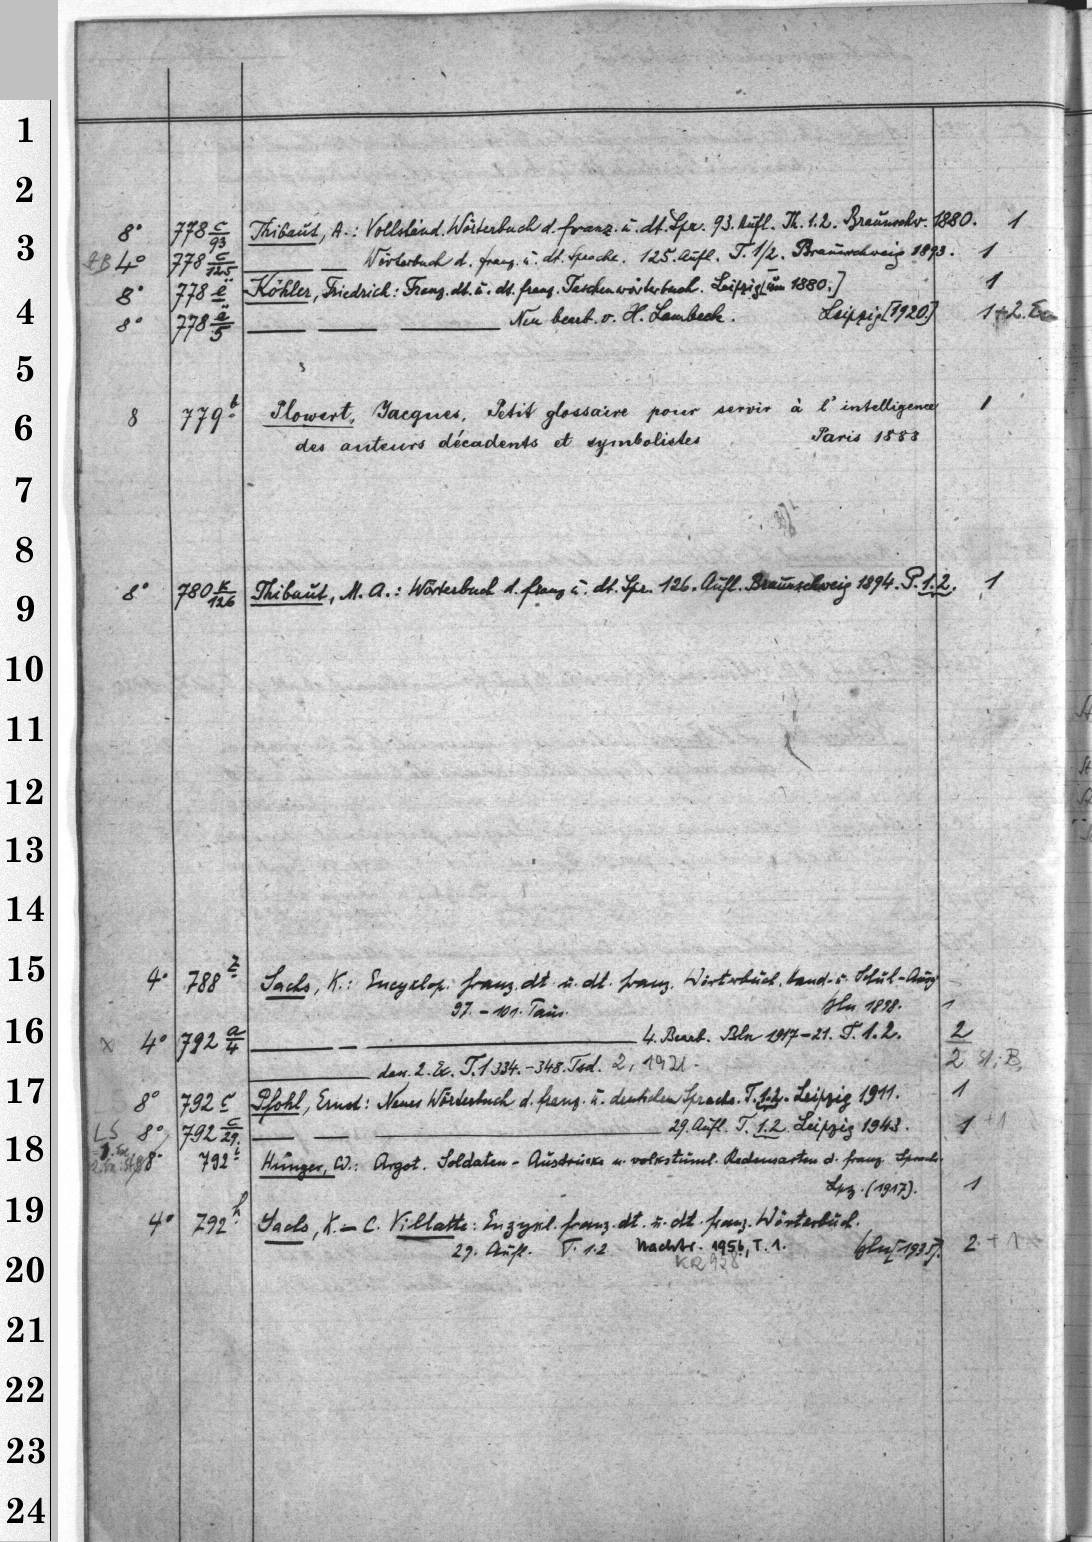 1
2
8° 778 c/93 Thibaut, A.: Vollständ. Wörterbuch d. franz. u. dt. Spr. 93. Aufl. Th. 1.2. Braunschw. 1880. 1
3
4° 778 c/125 — — Wörterbuch d. franz. u. dt. Sprache. 125. Aufl. T. 1/2. Braunschweig 1893. 1
8° 778 e Köhler, Friedrich: Franz. dt. u. dt. franz. Taschenwörterbuch. Leipzig [um 1880.] 1
4
8° 778 e/5 — — — Neu bearb. v. H. Lambeck. Leipzig [1920] 1+2. Ex
5
8 779 b Plowert, Jacques, Petit glossaire pour servir à l'intelligence 1
6
des auteurs décadents et symbolistes Paris 1888
7
8
8° 780 K/126 Thibaut, M. A.: Wörterbuch d. franz u. dt. Spr. 126. Aufl. Braunschweig 1894. P. 1.2. 1
9
10
11
12
13
14
15
4° 788 z Sachs, K.: Encyklop. franz. dt. u. dt. franz. Wörterbuch. Hand- u. Schul-Ausg
97. - 101. Taus. Bln 1898. 1
16
x 4° 792 a/4 — — — 4. Bearb. Bln 1917-21. T. 1.2. 2
— dass. 2. Ex. T. 1 334.-348. Tsd. 2, 1921. 2 St. B,
17
8° 792 c Pfohl, Ernst: Neues Wörterbuch d. franz. u. deutschen Sprache. T. 1.2. Leipzig 1911. 1
LS 8° 792 c/29. — — — 29. Aufl. T. 1.2. Leipzig 1943. 1 +1
18
8° 792 Hunger, W.: Argot. Soldaten-Ausdrücke u. volkstüml. Redensarten d. franz. Sprache
Lpz. (1917). 1
19
4° 792 h Sachs, K. - C. Villatte: Enzykl. franz. dt. u. dt. franz. Wörterbuch.
29. Aufl. T. 1.2 Nachtr. 1956, T. 1. Bln [1935]. 2 + 1
20
KR 928
21
22
23
24